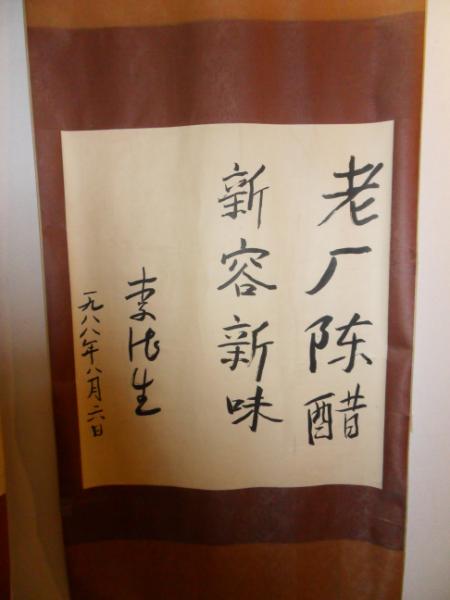 老厂陈醋
新容新味
李德生
一九八八年八月六日